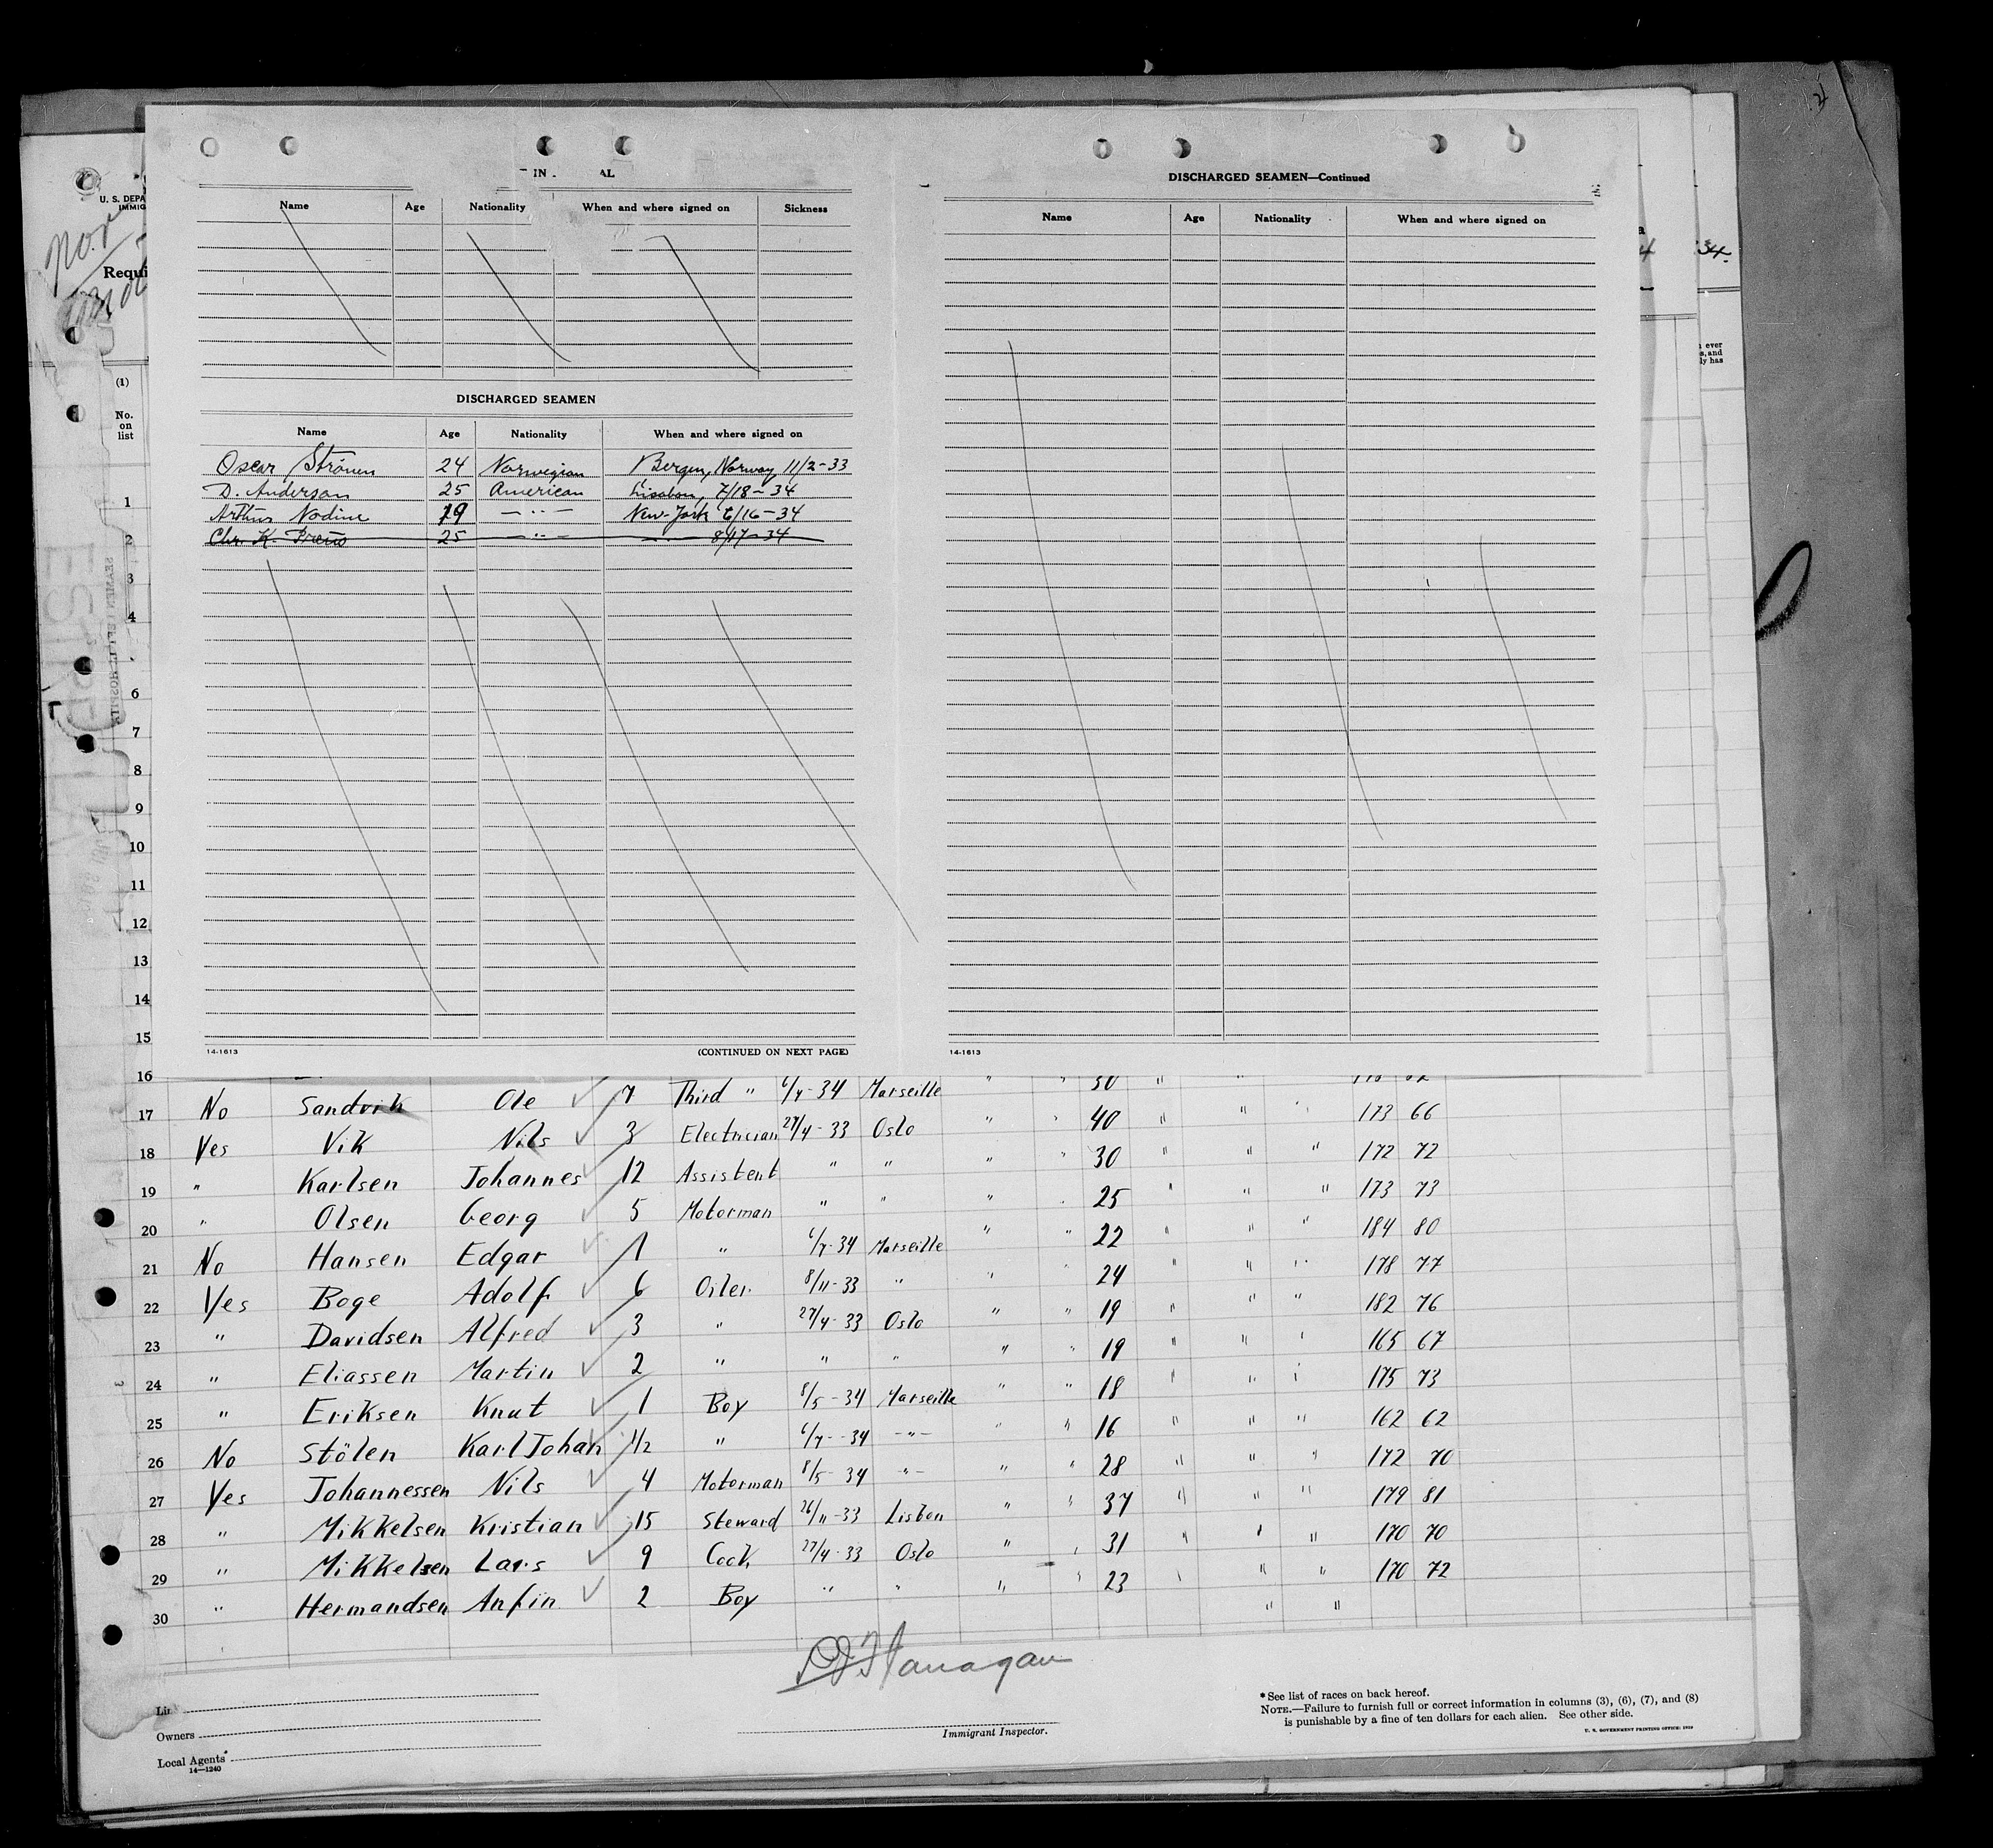 IN AL
Name Age Nationality When and where signed on Sickness
DISCHARGED SEAMEN
Name Age Nationality When and where signed on
Oscar Strönen 24 Norwegian Bergen, Norway 11/2-33
D. Anderson 25 American Lisabon, 7/18-34
Arthur Nodine 19 — ·· — New-York 6/16-34
Chr. K. 25 — ·· — — ·· — 8/17-34
14-1613 (CONTINUED ON NEXT PAGE)
DISCHARGED SEAMEN—Continued
Name Age Nationality When and where signed on
14-1613
U. S. DEPA
IMMIG
Nor
Requi
34.
ever
s, and
ly has
(1)
No.
on
list
1
2
3
4
6
7
8
9
10
11
12
13
14
15
16
17 No Sandvik Ole 7 Third " 6/7-34 Marseille " " 30 " "
18 Yes Vik Nils 3 Electrician 27/4-33 Oslo " " 40 " " " 173 66
19 " Karlsen Johannes 12 Assistent " " " " 30 " " " 172 72
20 " Olsen Georg 5 Motorman " " " " 25 " " " 173 73
21 No Hansen Edgar 1 " 6/7-34 Marseille " " 22 " " " 184 80
22 Yes Boge Adolf 6 Oiler 8/11-33 " " " 24 " " " 178 77
23 " Davidsen Alfred 3 " 27/4-33 Oslo " " 19 " " " 182 76
24 " Eliassen Martin 2 " " " " " 19 " " " 165 67
25 " Eriksen Knut 1 Boy 8/5-34 Marseille " " 18 " " " 175 73
26 No Stölen Karl Johan 1/2 " 6/7-34 -"- " " 16 " " " 162 62
27 Yes Johannessen Nils 4 Motorman 8/5-34 -"- " " 28 " " " 172 70
28 " Mikkelsen Kristian 15 Steward 26/11-33 Lisbon " " 37 " " " 179 81
29 " Mikkelsen Lars 9 Cook 27/4-33 Oslo " " 31 " " " 170 70
30 " Hermandsen Anfin 2 Boy " " " " 23 " " " 170 72
Flanagan
Immigrant Inspector.
Owners
Local Agents*
14—1240
* See list of races on back hereof.
NOTE.—Failure to furnish full or correct information in columns (3), (6), (7), and (8)
is punishable by a fine of ten dollars for each alien. See other side.
U. S. GOVERNMENT PRINTING OFFICE: 1929